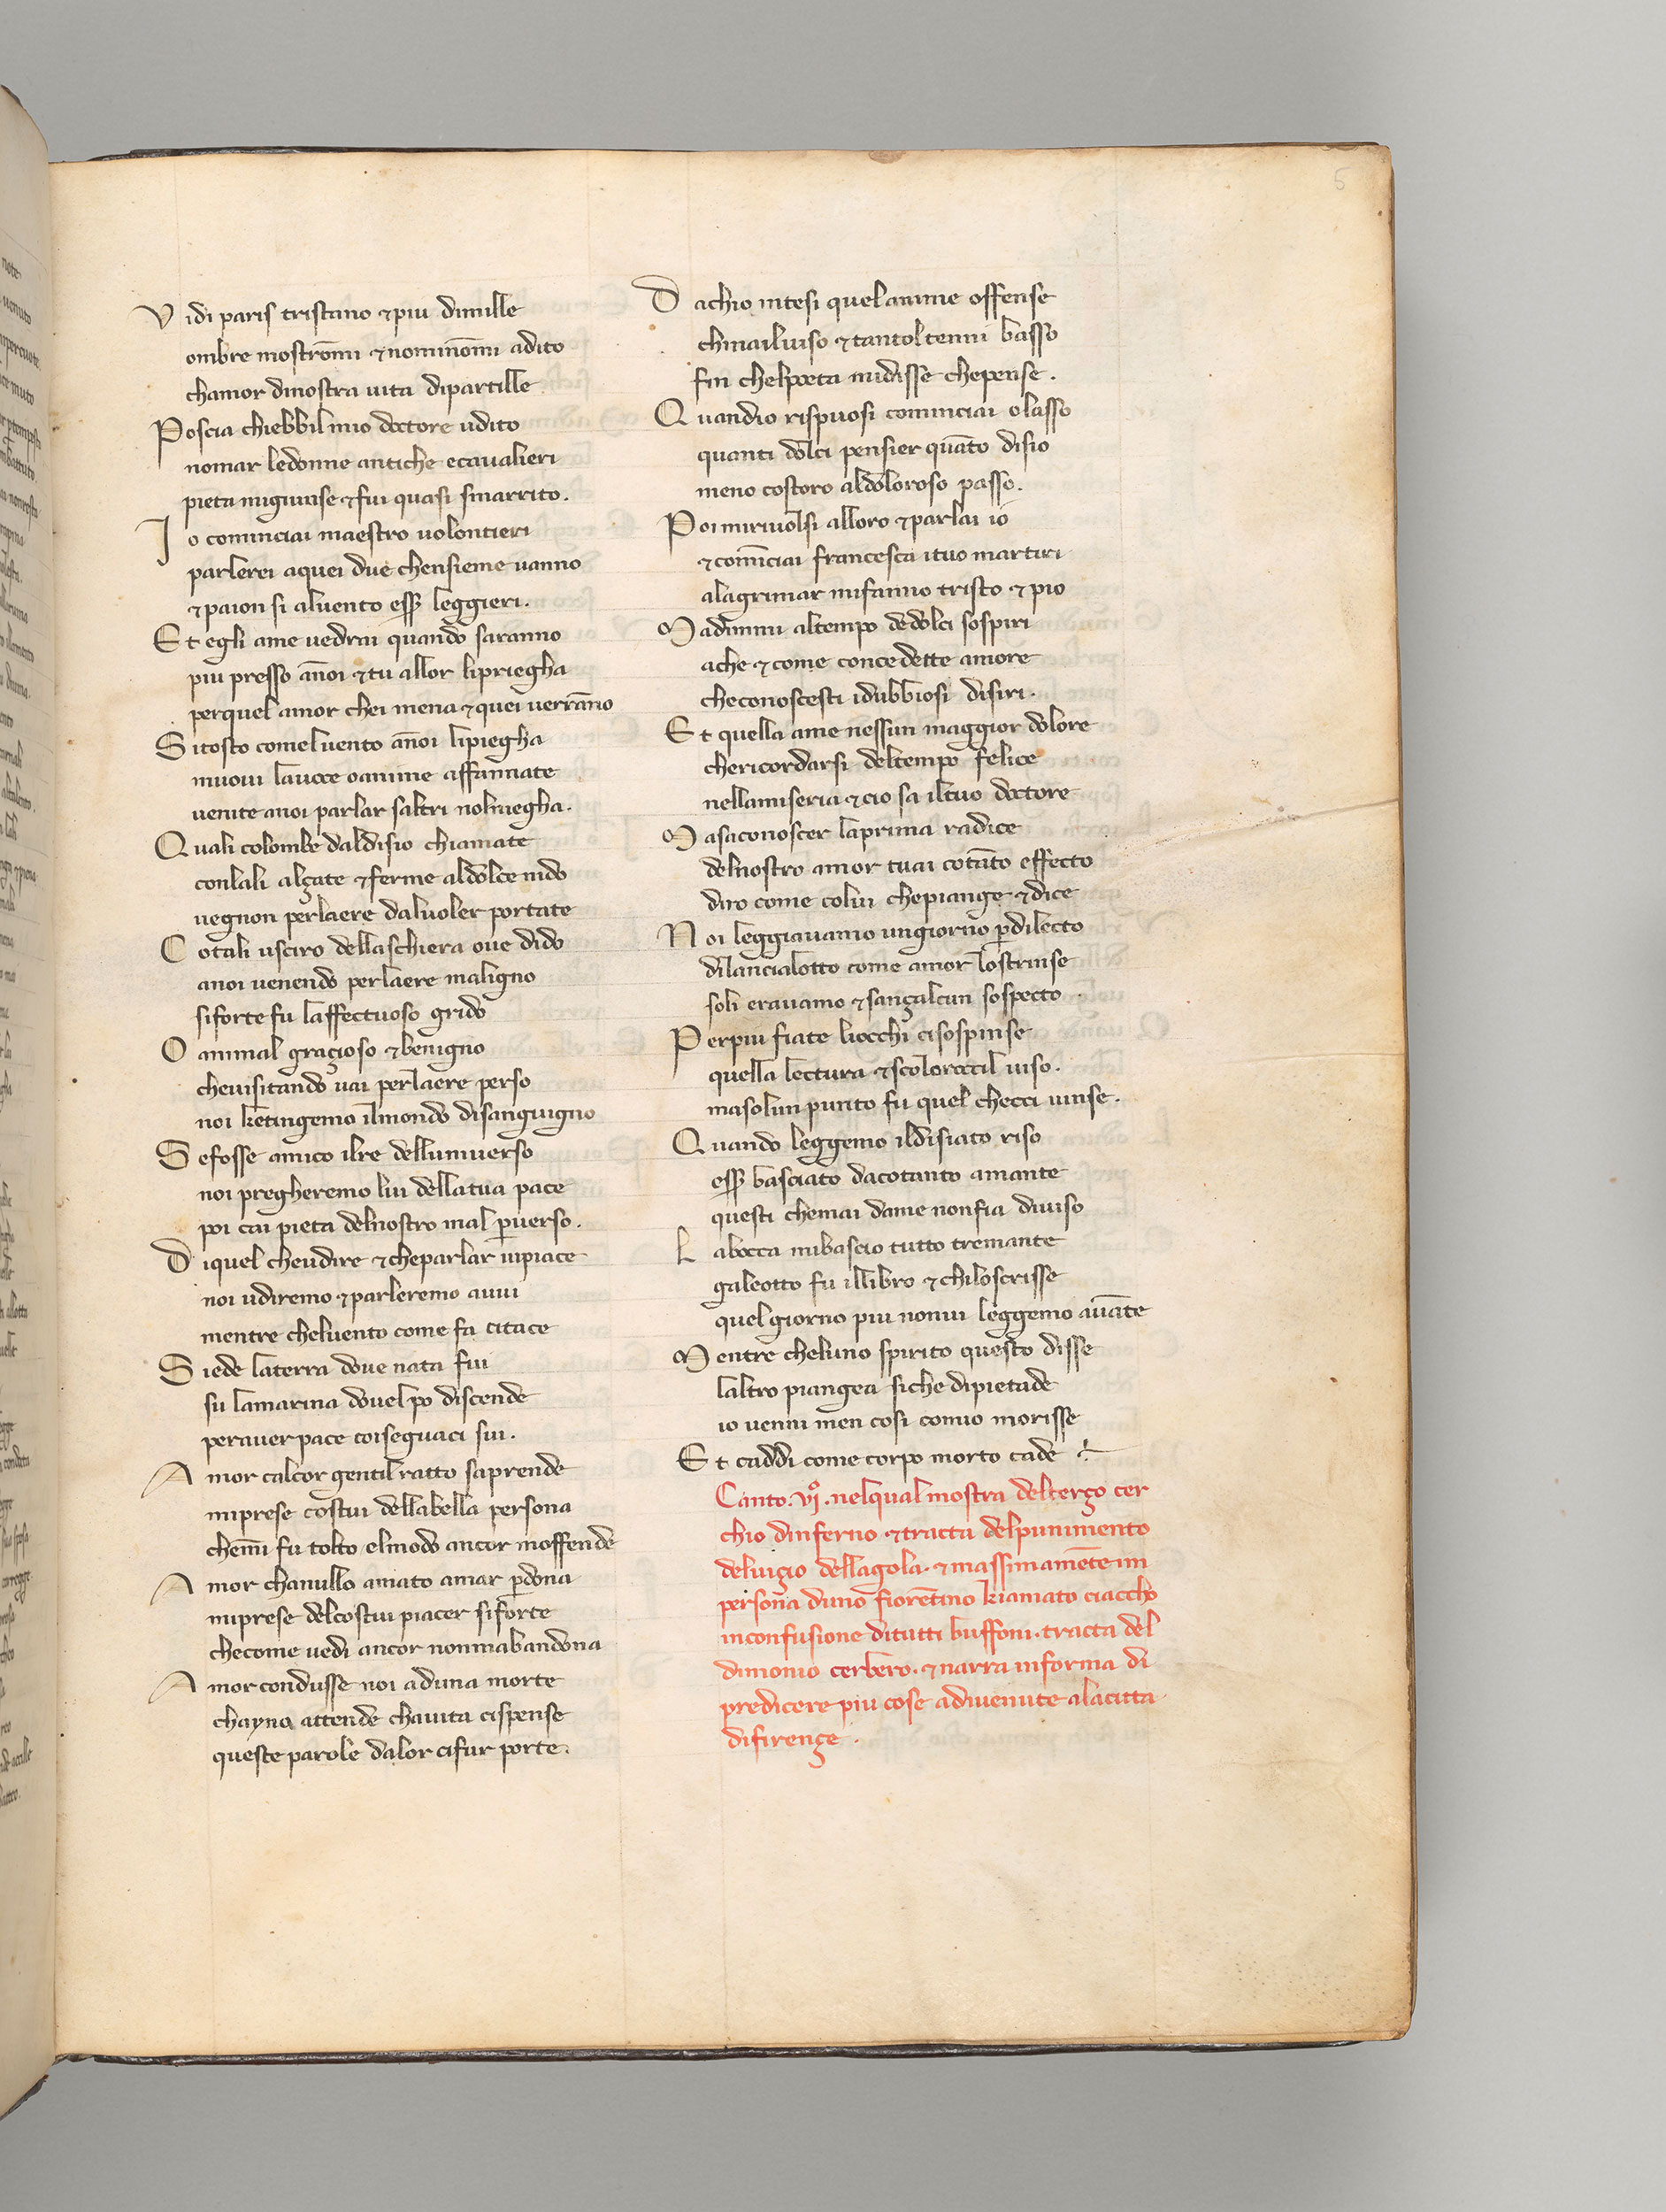 5
Vidi paris tristano ⁊ piu dimille
ombre mostrōmi ⁊ nominōmi adito
chamor dinostra uita dipartille
Poscia chiebbil mio doctore udito
nomar ledonne antiche ecavalieri
pieta migiunse ⁊ fui quasi smarrito.
Io cominciai maestro uolontieri
parlerei aquei due chensieme uanno
⁊ paion si aluento esser leggieri.
Et egli ame uedrai quando saranno
piu presso ānoi ⁊ tu allor lipriegha
perquel amor chei mena ⁊ quei uerrāno
Sitosto comeluento ānoi lipiegha
muoui lauoce oanime affannate
uenite anoi parlar saltri nolniegha.
Quali colombe daldisio chiamate
conlali alçate ⁊ ferme aldolce nido
uegnon perlaere daluoler portate
Cotali usciro dellaschiera oue dido
anoi uenendo perlaere maligno
siforte fu laffectuoso grido
O animal gratioso ⁊ benigno
cheuisitando uai perlaere perso
noi ketingemo ilmondo disanguigno
Sefosse amico ilre delluniuerso
noi pregheremo lui dellatua pace
poi cai pieta delnostro mal peruerso.
Diquel cheudire ⁊ cheparlar uipiace
noi udiremo ⁊ parleremo auui
mentre cheluento come fa citace
Siede laterra doue nata fui
su lamarina douelpo discende
perauer pace coiseguaci sui.
Amor calcor gentil ratto saprende
miprese costui dellabella persona
chemī fu tolto elmodo ancor moffende
Amor chanullo amato amar perdona
miprese delcostui piacer siforte
checome uedi ancor nonmabandona
Amor condusse noi aduna morte
chayna attende chauita cispense
queste parole dalor cifur porte.
Dachio intesi quel anime offense
chinailuiso ⁊ tantoltenni basso
fin chelpoeta midisse chepense.
Quandio rispuosi cominciai olasso
quanti dolci pensier quāto disio
meno costoro aldoloroso passo.
Poi mirivolsi alloro ⁊ parlai io
⁊ comīciai francesca ituo martiri
alagrimar mifanno tristo ⁊ pio
Madimmi altempo dedolci sospiri
ache ⁊ come concedette amore
checonoscesti idubbiosi disiri.
Et quella ame nessun maggior dolore
chericordarsi deltempo felice
nellamiseria ⁊ cio sa iltuo doctore
Masaconoscer laprima radice
delnostro amor tuai cotāto effecto
diro come colui chepiange ⁊ dice
Noi leggiauamo ungiorno perdilecto
dilancialotto come amor lostrinse
soli erauamo ⁊ sançalcun sospecto.
Perpiu fiate liocchi cisospinse
quella lectura ⁊ scoloroccil uiso.
masolun punto fu quel checci uinse.
Quando leggemo ildisiato riso
esser basciato dacotanto amante
questi chemai dame nonfia diuiso
Labocca mibascio tutto tremante
galeotto fu illibro ⁊ chiloscrisse
quel giorno piu nonui leggemo auāte
Mentre cheluno spirito questo disse
laltro piangea siche dipietade
io uenni men cosi comio morisse
Et caddi come corpo morto cade
Canto. vjº. nelqual mostra delterço cer
chio dinferno ⁊ tracta delpunimento
deluiçio dellagola. ⁊ massimamēte in
persona duno fiorētino kiamato ciaccho
inconfusione ditutti buffoni. tracta del
dimonio cerbero. ⁊ narra informa di
predicere piu cose adiuenute alacitta
difirençe.